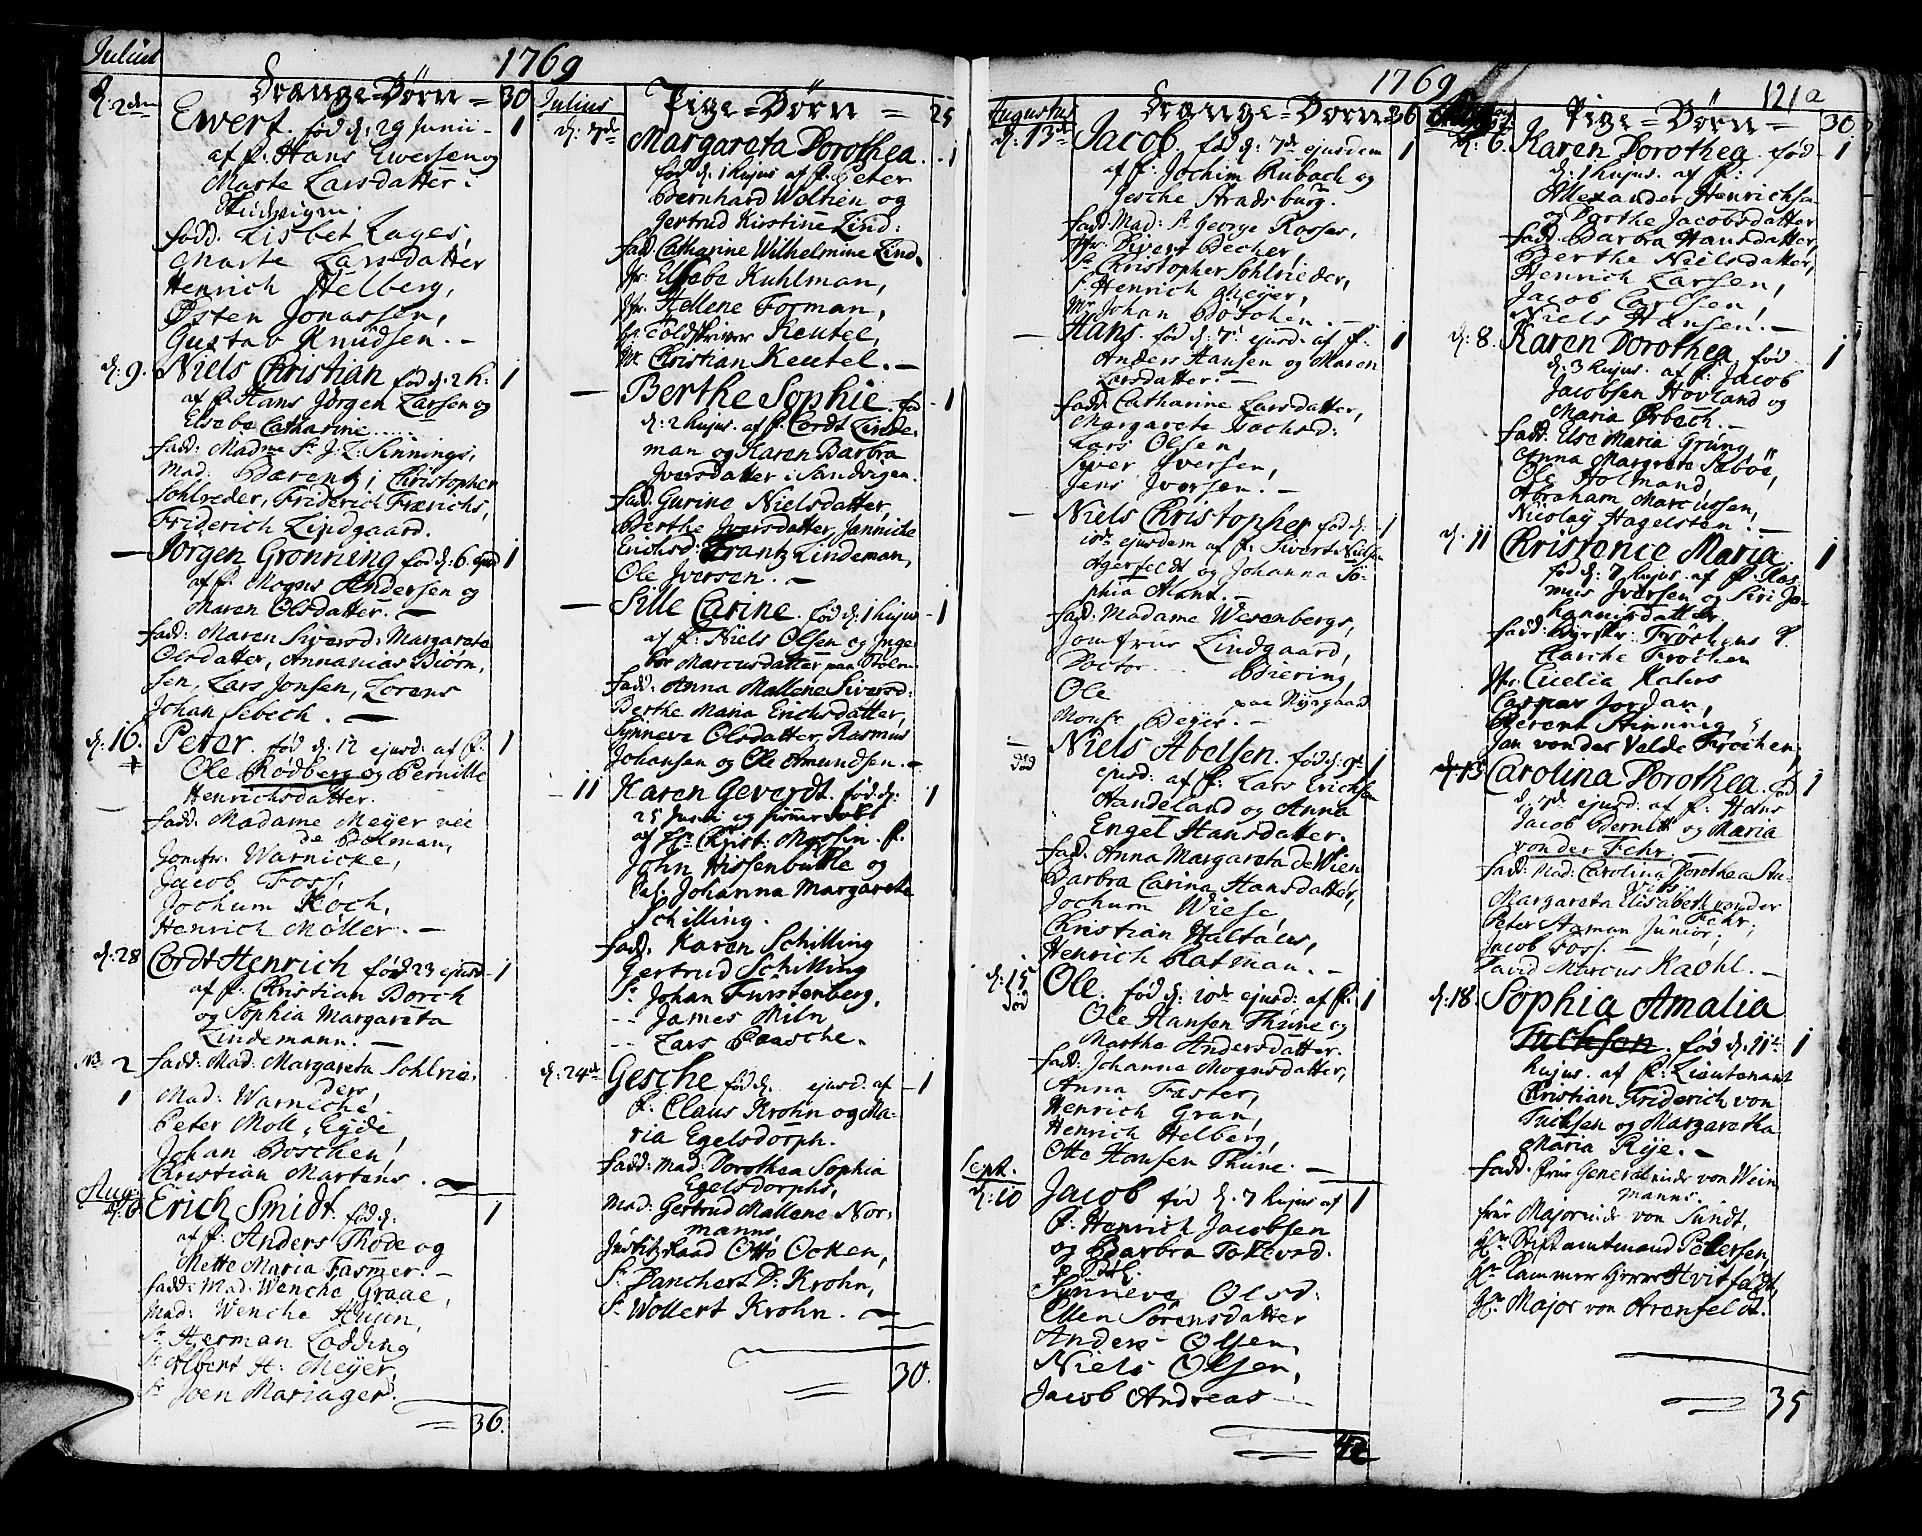 Julius
1769
Drænge-Børn = 30
d: 2den
Ewert. fød d: 29 Junii - 1
af f. Hans Ewersen og
Marte Larsdatter.
fadd. Lisbet Lages,
Marte Larsdatter
Henrich Helberg,
Østen Jonassen,
Gustav Knudsen. -
d: 9. Niels Christian fød d: 2 h. 1
af f. Hans Jørgen Larsen og
Elsebe Catharine......
fadd: Madme Sr J. Z. Sinnings,
Mad: Barentz, Christopher
Sohlreder, Friderich Frærichs,
Friderich Lindgaard.
- Jørgen Grønning fød d: 6 ejusd 1
af f. Mogns Andersen og
Maren Olsdatter. -
fadd: Maren Siversd: Margareta
Olsdatter, Annanias Biørn,
sen, Lars Jonsen, Lorens
Johan Sebech. -
d: 16. Peter. fød d: 12 ejusd: af f. 1
Ole Rødberg og Pernille
Henrichsdatter.
fadd: Madame Meyer née
de Bolman,
Jomfr. Warnicke,
Jacob Foss,
Jochum Koch,
Henrich Møller. -
d: 28 Cordt Henrich fød 23 ejusd - 1
af f. Christian Borch
og Sophia Margareta
Lindemann. -
NB 2 fadd: Mad: Margareta Sohlrie,
ders,
1 Mad: Warniche,
Peter Moll, Eyde
Johan Boschen,
Christian Martens.
Aug:
d: 6 Erich Smidt. fød d: 1
af f. Anders Thode og
Mette Maria Fasmer. -
fadd: Mad: Wenche Graae,
Mad: Wenche Huun,
Sr Herman Lodding
Sr Albert H: Meyer,
Sr Joen Mariager.
36.
Julius
Pige-Børn = 25
d: 7de Margareta Dorothea. - 1
fød d: 1 hujus af f. Peter
Bernhard Woltien og
Gertrud Kirstine Lind:
fadd: Catharine Wilhelmine Lind,
Jfr. Elsebe Kuhlman,
Jfr. Hellene Forman,
Hr. Toldskriver Keutel,
Mr. Christian Keutel. -
- Berthe Sophie. fød - 1
d: 2 hujus. af f. Cordt Linde,
man og Karen Barbra
Iversdatter i Sandvigen.
fadd: Gurine Nielsdatter,
Berthe Iversdatter, Jannicke
Erichsd: Frantz Lindeman,
Ole Iversen. -
- Sille Carine. fød d: 1 hujus - 1
af f. Niels Olsen og Inge-
bor Marcusdatter paa Holm
fadd: Anna Mallene Siversd:
Berthe Maria Erichsdatter,
Synneve Olsdatter, Rasmus
Johansen og Ole Amundsen. -
- 11 Karen Geverdt. fød d: 1
25 Junii og hiemmedøbt
af Hr. Christ: Mossin. f.
John Hissenbuttle og
Sal: Johanna Margareta
Schilling.
fadd: Karen Schilling
Gertrud Schilling
Sr. Johan Furstenberg,
-- James Miln
-- Lars Paasche.
d: 24de Gesche fød d. ejusd: af - 1
f. Claus Krohn og Ma-
ria Egelsdorph.
fadd: Mad: Dorothea Sophia
Egelsdorphs,
Mad: Gertrud Mallene Nor,
manns,
Justitz Raad Otto Ocken,
Sr. Danchert D: Krohn,
Sr. Wollert Krohn.
30.
1769
Augustus
Drænge-Børn 36
d: 13de Jacob. fød d: 7de ejusdem 1
af f. Jochim Rubach og
Gesche Stradsburg.
fadd: Mad: Sr. George Rosses,
Jfr. Sivert Becher,
Sr. Christopher Sohlrieder,
Sr. Henrich Meyer,
Mr. Johan Boschen. -
- Hans. fød d: 7de ejusd: af f. 1
Anders Hansen og Maren
Larsdatter. -
fadd: Catharine Larsdatter,
Margarete Isachsd:
Lars Olsen
Siver Iversen,
Jens Iversen. -
- Niels Christopher fød d: 1
10de ejusdem af f. Sivert Niels
Agerfeldt og Johanna So-
phia Alant. -
fad: Madame Wesenbergs,
Jomfrue Lindgaard,
Doctor . . Biering,
Ole . . paa Nygaard
Monsr Beyer. -
- død Niels Abelsen. fød d: 9de 1
ejusd: af f. Lars Erichsen
Handeland og Anna
Engel Hansdatter.
fadd: Anna Margareta de Wien
Barbra Carina Hansdatter,
Jochum Wiese,
Christian Haltalus,
Henrich Ratman. -
d: 15 død Ole. fød d: 10de ejusd: af f. 1
Ole Hansen Thune og
Marthe Andersdatter.
fadd: Johanne Mognsdatter,
Anna Faster,
Henrich Gran,
Henrich Helberg,
Otte Hansen Thune. -
Sept.
d: 10 Jacob fød d. 7 hujus af 1
f. Henrich Jacobsen
og Barbra Tollevsd.
Synneve Olsd:
Ellen Sørensdatter
Anders Olsen,
Niels Olsen,
Jacob Andreas
42
121 a
Pige-Børn = 30
d: 6. Karen Dorothea. fød - 1
d: 1 hujus. af f:
Alexander Henrichsen
og Berthe Jacobsdatter
fadd: Barbra Hansdatter,
Berthe Nielsdatter,
Henrich Larsen,
Jacob Carlsen,
Niels Hansen. -
d: 8. Karen Dorothea. fød 1
d: 3 hujus. af f: Jacob
Jacobsen Hovland og
Maria Ørbech. -
fadd: Else Maria Grüng
Anna Margrete Sæboe,
Ole Holmand,
Abraham Marcussen,
Nicolay Hagelsten. -
d. 11 Christence Maria 1
fød d: 7 hujus. af f. Ras-
mus Iversen og Siri Jo-
hannisdatter,
fadd: Frøchens f.
Clariche Frochen
Jfr: Cicelia Kahrs
Casper Jordan,
Berent Sinning,
Jan von der Velde Frochen,
d. 15 Carolina Dorothea. fød 1
d. 7de ejusd: af f: Hans
Jacob Berntt og Maria
von der Fehr. -
fadd: Mad: Carolina Dorothea Stu-
vits,
Margareta Elisabeth von der
Fehr,
Peter Axman Junior,
Jacob Foss. -
David Marcus Kaohl. -
d: 18. Sophia Amalia
Tuchsen. fød d. 11te 1
hujus. af f. Lieutenant
Christian Friderich von
Tuchsen og Margaretha
Maria Rye. -
fadd. frue Generalinde von Wein
manns.
frue Majorinde von Sundt,
Hr. Stiftamtmand Petersen,
Hr. Cammer Herre Hvitfeldt,
Hr. Major von Arenfeldt.
35